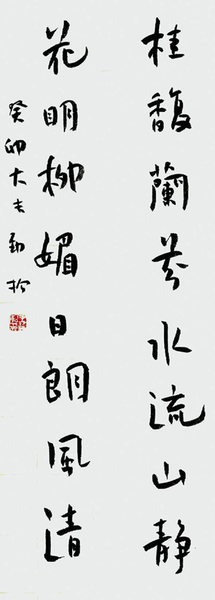 桂馥蘭芬水流山静
花明柳媚日朗風清
癸卯大吉